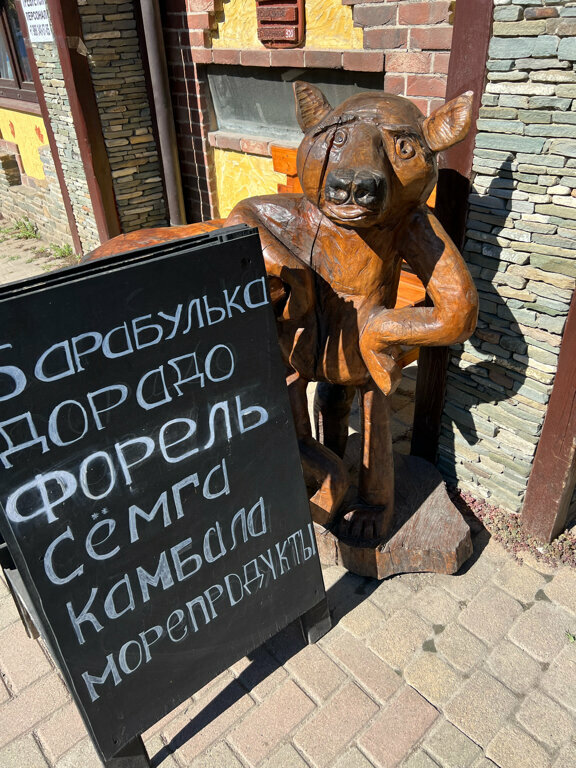 Барабулька
Дорадо
Форель
Сёмга
Камбала
Морепродукты